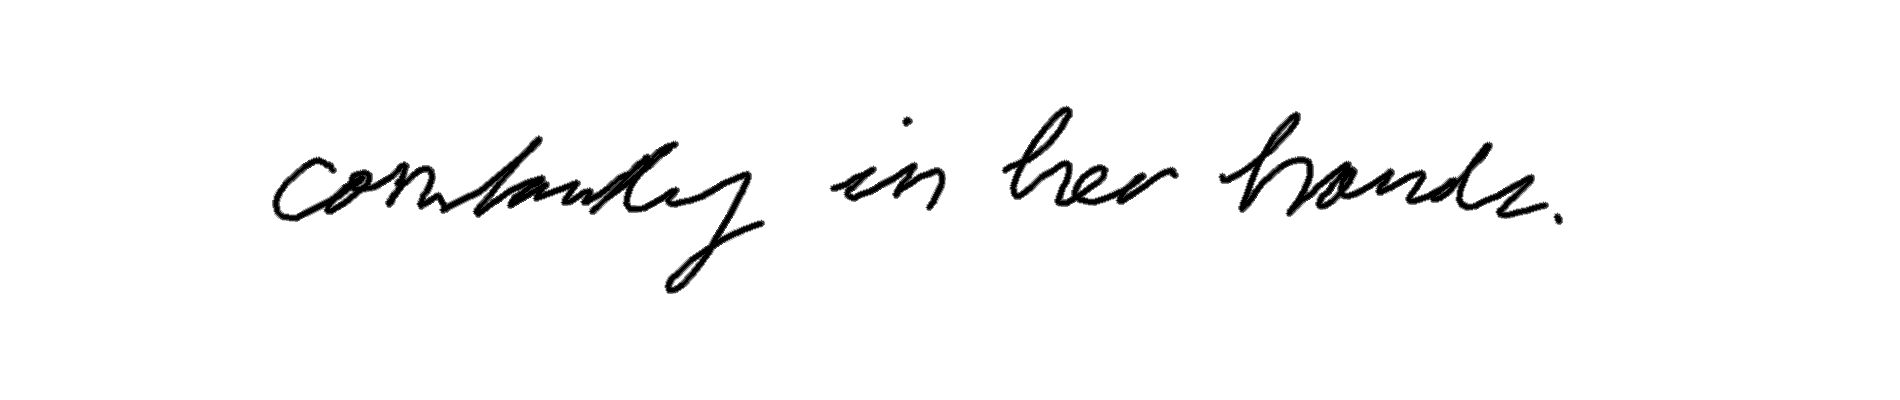 constantly in her hands.